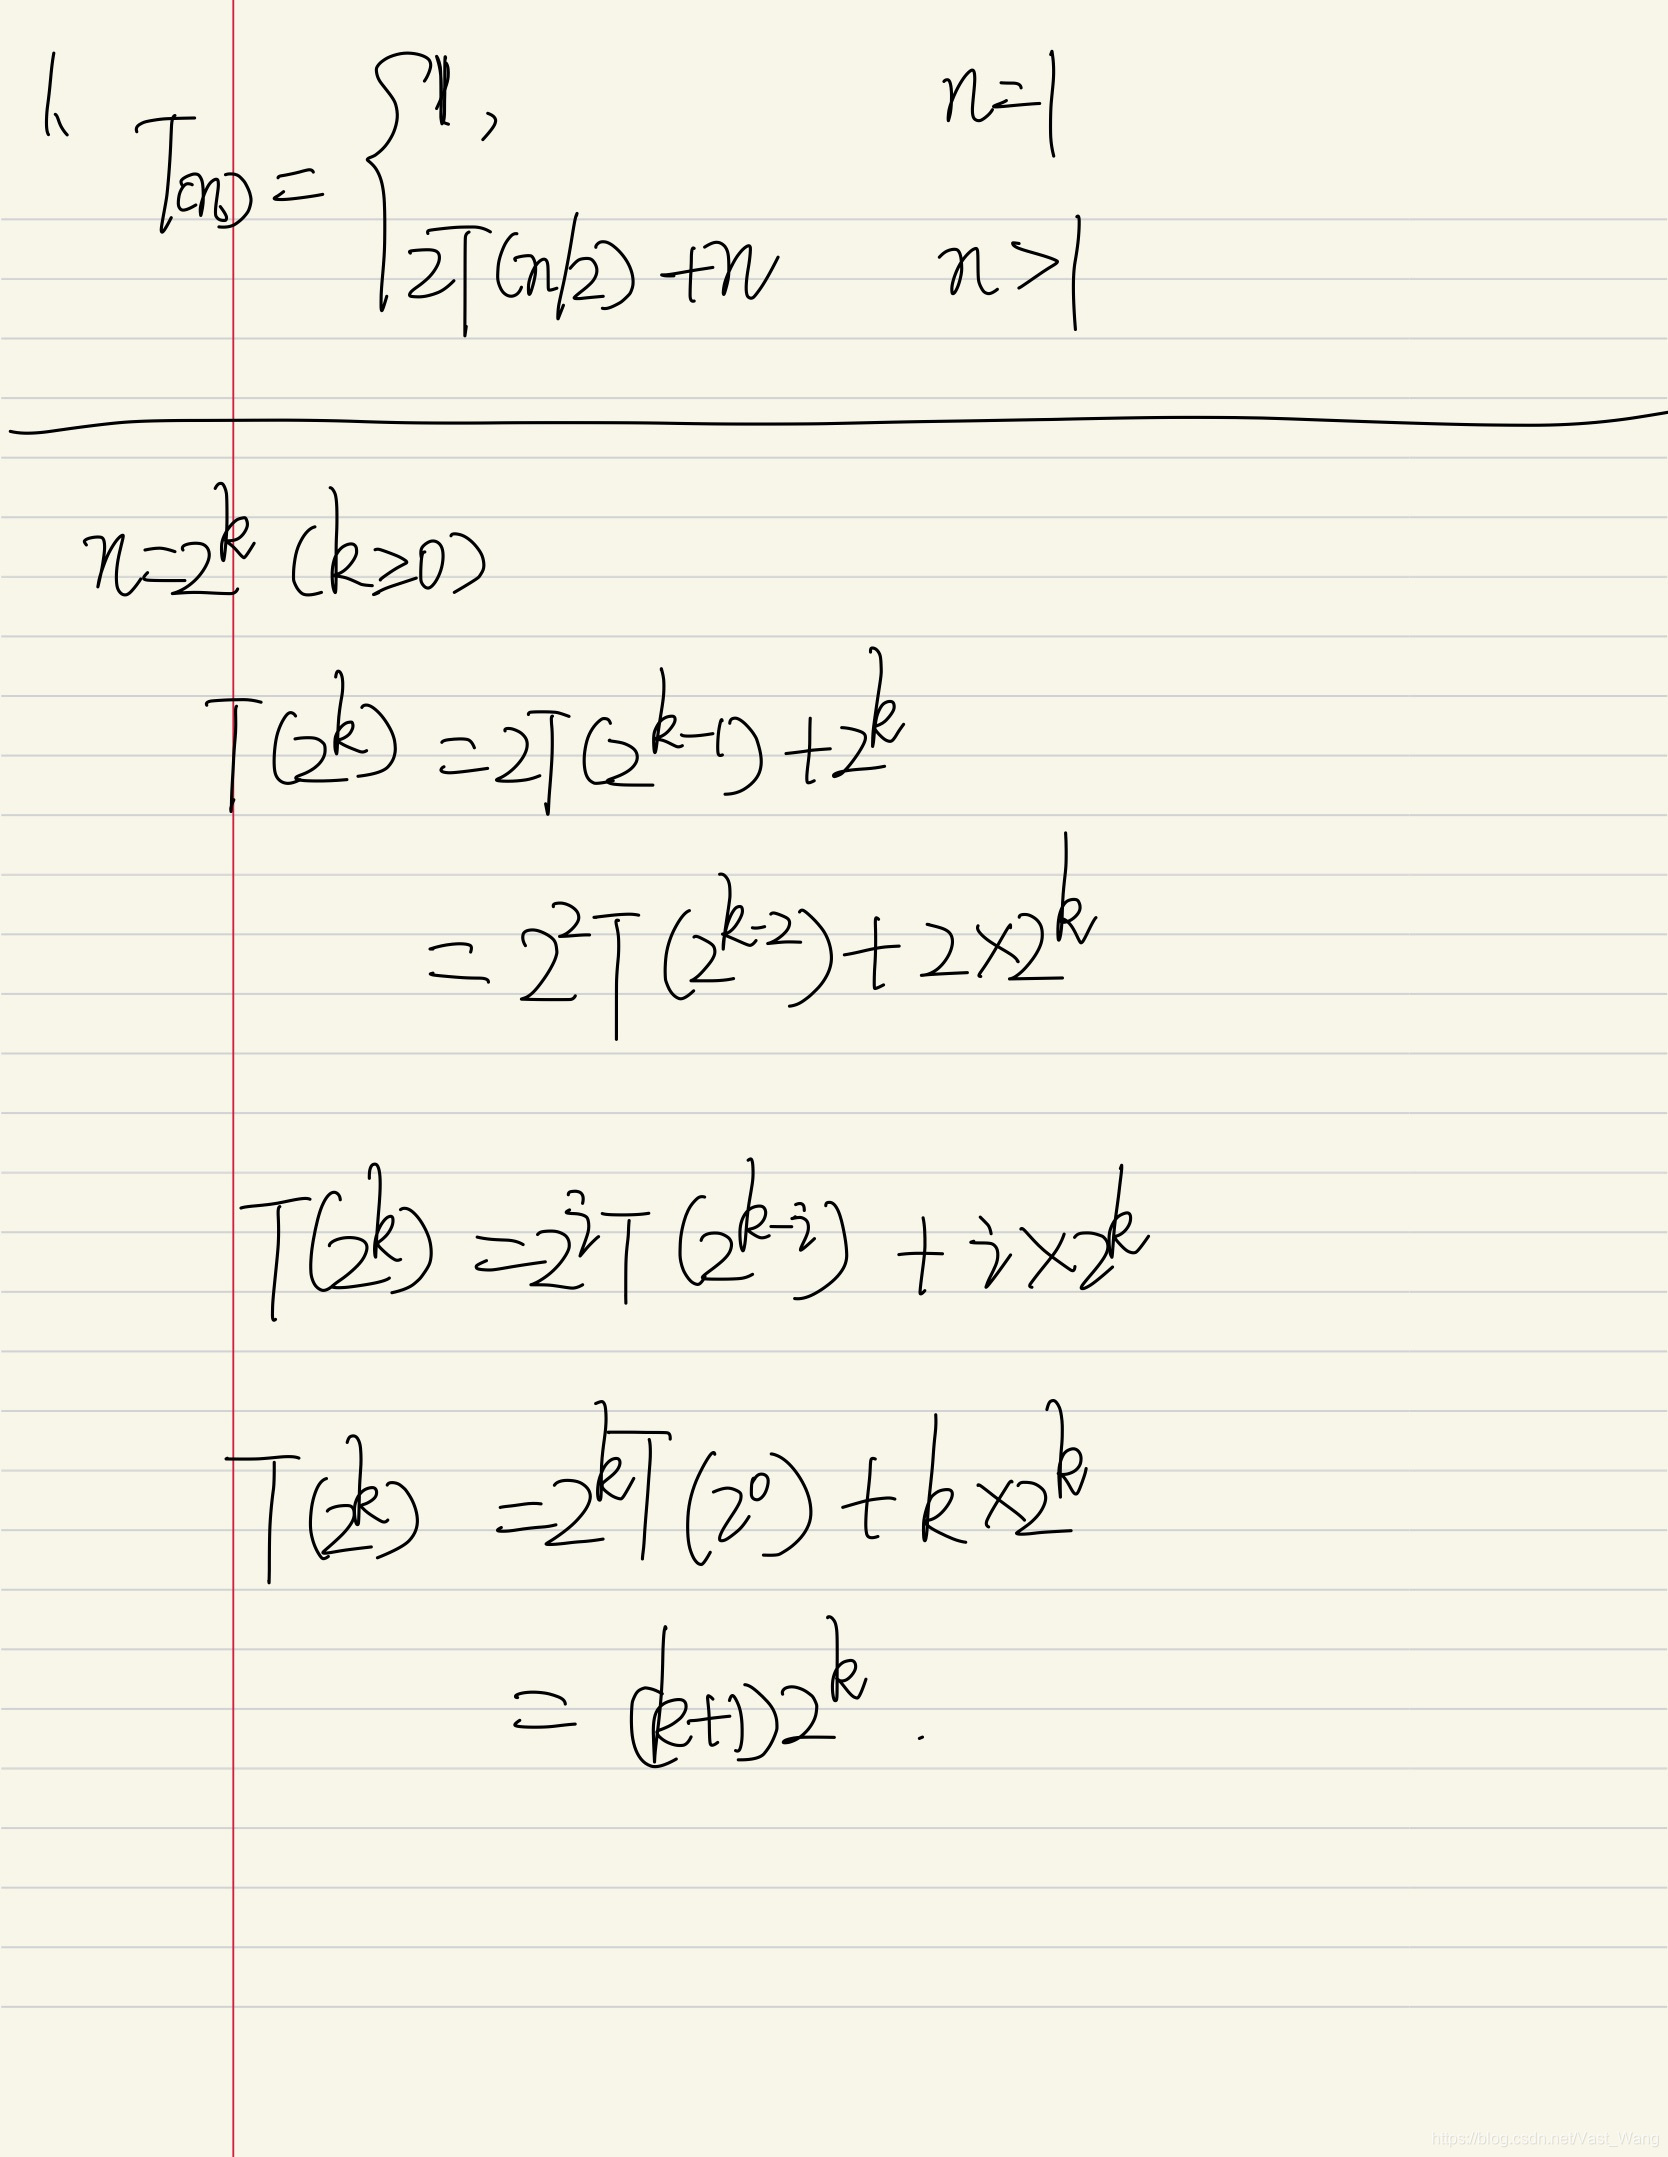 1、
T(n) = { 1, n=1
2T(n/2)+n n>1
n=2^k (k≥0)
T(2^k) =2T(2^{k-1})+2^k
= 2^2T(2^{k-2})+2×2^k
T(2^k) =2^iT(2^{k-i})+i×2^k
T(2^k) =2^kT(2^0)+k×2^k
= (k+1)2^k .
https://blog.csdn.net/Vast_Wang